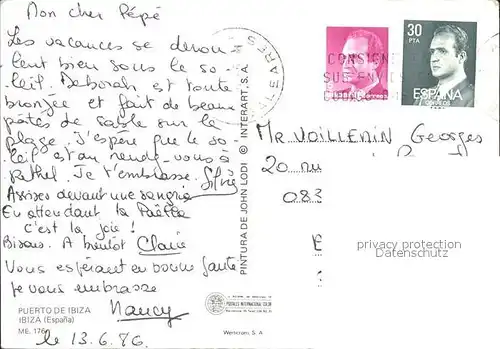 Mon cher Pépé
Les vacances se dérou
lent bien sous le so-
leil. Deborah est toute
bronzée et fait de beaux
pâtés de sable sur la
plage. J'espère que le so-
leil est au rendez-vous à
Rethel. Je t'embrasse. Silvie
Assises devant une sangria
En attendant la Paëlla
c'est la joie !
Bisous. A bientôt Claire
Vous espérant en bonne santé
je vous embrasse
Nancy
le 13.6.86
PUERTO DE IBIZA
IBIZA (España)
ME. 176
PINTURA DE JOHN LODI © INTERART, S.A.
POSTALES INTERNATIONAL COLOR
Wenicrom, S. A
BALEARES
CONSIGNE
España correos
30
PTA
ESPAÑA
CORREOS
Mr VOILLEMIN Georges
20 ru
083
privacy protection
Datenschutz